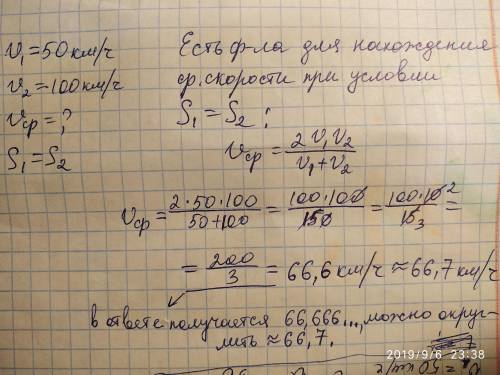 v₁ = 50 км/ч
v₂ = 100 км/ч
vср = ?
S₁ = S₂
Есть ф-ла для нахождения
ср. скорости при условии
S₁ = S₂ :
vср = 2 v₁ v₂ / v₁ + v₂
vср = 2·50·100 / 50+100 = 100·100 / 150 = 100·10 2 / 15 3 =
= 200 / 3 = 66,6 км/ч ≈ 66,7 км/ч
в ответе получается 66,666..., можно округ-
лить ≈ 66,7.
2019/9/6 23:38